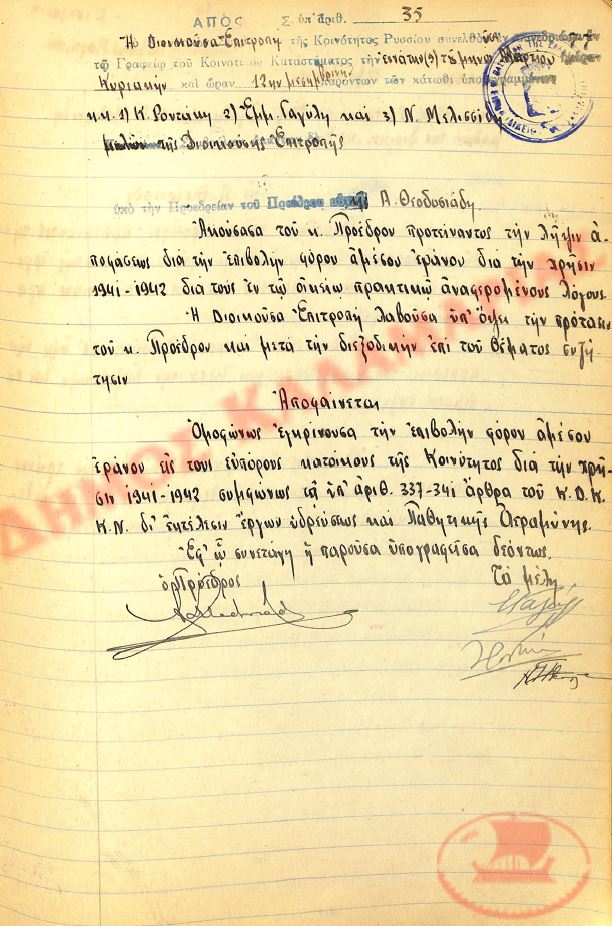 ΑΠΟΣ Σ ὑπ' ἀριθ. 35
Ἡ Διοικοῦσα Ἐπιτροπή τῆς Κοινότητος Ρυσσίου συνελθοῦσα
τῷ Γραφείῳ τοῦ Κοινοτικοῦ Καταστήματος τὴν ἐνάτην (9) τοῦ μηνός Μαρτίου ἡμέραν
Κυριακήν καὶ ὥραν 12ην μεσημβρινήν παρόντων τῶν κάτωθι ὑπογεγραμμένων
κ.κ. 1) Κ. Ροντάκη 2) Ἐμμ. Γαγύλη καὶ 3) Ν. Μελισσίδη
μελῶν τῆς Διοικούσης Ἐπιτροπῆς
ὑπὸ τὴν Προεδρείαν τοῦ Προέδρου αὐτῆς Α. Θεοδοσιάδη
Ἀκούσασα τοῦ κ. Προέδρου προτείναντος τὴν λῆψιν ἀ-
ποφάσεως διὰ τὴν ἐπιβολὴν φόρου ἀμέσου ἐράνου διὰ τὴν χρῆσιν
1941-1942 διὰ τοὺς ἐν τῷ οἰκείῳ πρακτικῷ ἀναφερομένους λόγους.
Ἡ Διοικοῦσα Ἐπιτροπή λαβοῦσα ὑπ' ὄψει τὴν πρότασιν
τοῦ κ. Προέδρου καὶ μετὰ τὴν διεξοδικήν ἐπὶ τοῦ θέματος συζή-
τησιν
Ἀποφαίνεται
Ὁμοφώνως ἐγκρίνουσα τὴν ἐπιβολὴν φόρου ἀμέσου
ἐράνου εἰς τοὺς εὐπόρους κατοίκους τῆς Κοινότητος διὰ τὴν χρῆ-
σιν 1941-1942 συμφώνως τῇ ὑπ' ἀριθ. 337-341 ἄρθρα τοῦ Κ.Δ.Κ.
Κ.Ν. δι' ἐκτέλεσιν ἔργων ὑδρεύσεως καὶ Παθητικῆς Ἀεραμύνης.
Ἐφ' ᾧ συνετάγη ἡ παροῦσα ὑπογραφεῖσα δεόντως.
ὁ Πρόεδρος Τὰ μέλη
ΔΗΜΟΣ ΚΑΛΑΜΑΡΙΑΣ